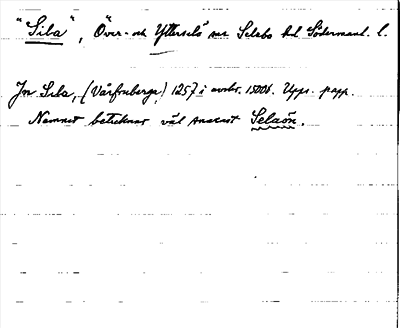 "Sila", Över- och Ytterselö sns Selebo hd Södermanl. l.
In Sila, (Vårfruberga) 1257 i avskr. 1500t. Upps. papp.
Namnet betecknar väl snarast Selaön.